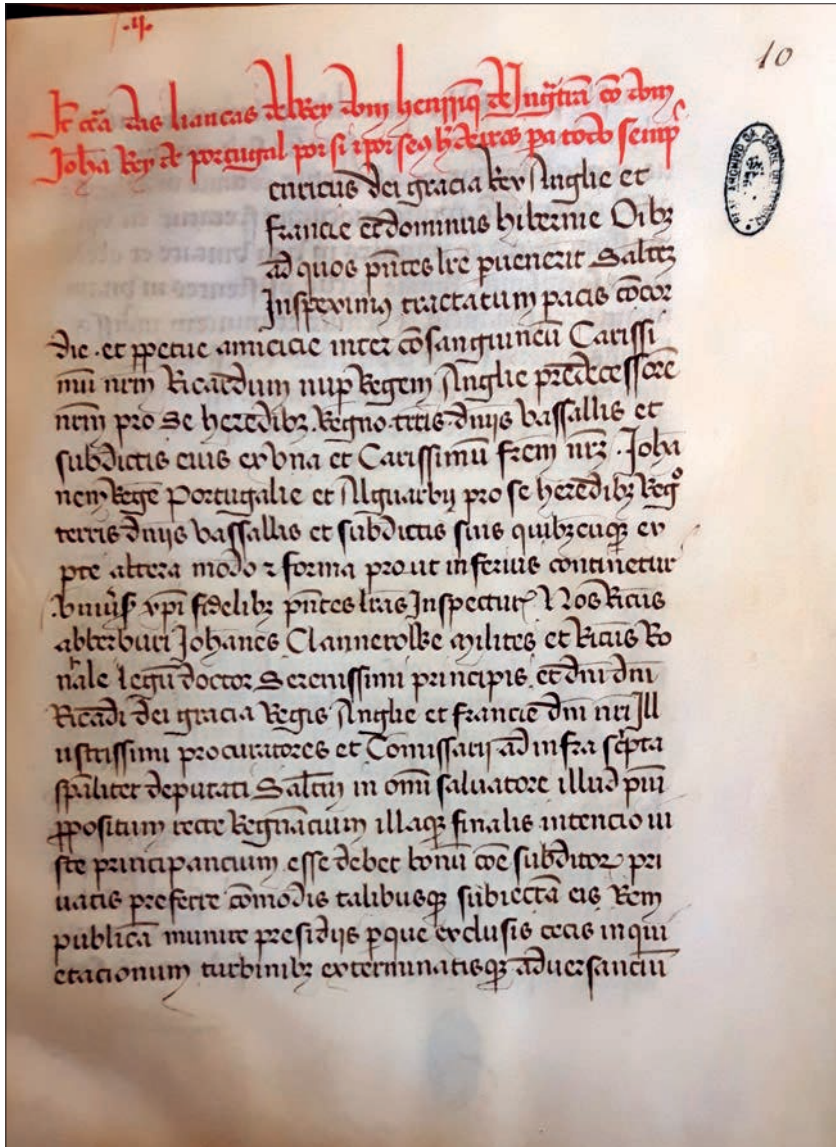 .ij.
10
It̃ cr̃a das lianças delRey dom henrriq̃ de Ingr̃tra cõ dom
Johã Rey de portugal por si ⁊ por seos h̃deiros pa todo semp̃
enricus dei gracia Rex Anglie et
Francie et dominus hibernie Oĩbꝫ
ad quos p̃ntes lr̃e puenerit Saltẽ
Inspeximꝰ tractatum pacis cõcor
die . et ꝑpetue amicicie inter cõsanguineũ Carissi
mũ nr̃m Ricardum nuꝑ Regem Anglie predecessorẽ
nr̃m pro se heredibꝫ Regno . terris . dñijs vassallis et
subdictis eius ex vna et Carissimũ fr̃em nr̃ꝫ . Joha
nem Regẽ Portugalie et Alguarbij pro se heredibꝫ Regº
terris dñijs vassallis et subdictis suis quibꝫcũqꝫ ex
pte altera modo ⁊ forma prout inferius continetur
.vniũs̃ xp̃i fidelibꝫ p̃ntes lr̃as Inspectur̃ Nos Ric̃us
abberburi Johanes Clannetolke milites et Ric̃us Ro
nhale legũ doctor Serenissimi principis . et dñi dñi
Ricãdi dei gracia Regis Anglie et francie dñi nr̃i Ill
ustrissimi procuratores et Comissarij ad infra scp̃ta
spãliter deputati Saltẽm in om̃i saluatore illud piũ
ꝓpositum recte Regnãcium illaqꝫ finalis intencio iu
ste principancium esse debet bonũ cõe subditoꝝ pri
uatis preferre cõmodis talibusqꝫ subiectã eis Rem
publicã munire presidijs ꝑque exclusis cecis in qui
etacionum turbinibꝫ exterminatisqꝫ aduersanciũ